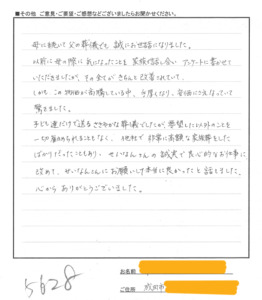 ■その他 ご意見・ご要望・ご感想などございましたらお聞かせください。
母に続いて父の葬儀でも誠にお世話になりました。
以前に母の際に気になったことを家族で話し合いアンケートに書かせて
いただきましたが、その全てがきちんと改善されていて、
しかもこの物価が高騰している中、手厚くなり、安価にさえなっていて
驚きました。
子ども達だけで送るささやかな葬儀でしたが、要望した以外のことを
一切進められることもなく、他社で非常に高額な家族葬をした
ばかりだったこともあり、せいなんさんの誠実で良心的なお仕事に
改めて、せいなんさんにお願いして本当に良かったと話しました。
心からありがとうございました。
5628
お名前
ご住所 成田市